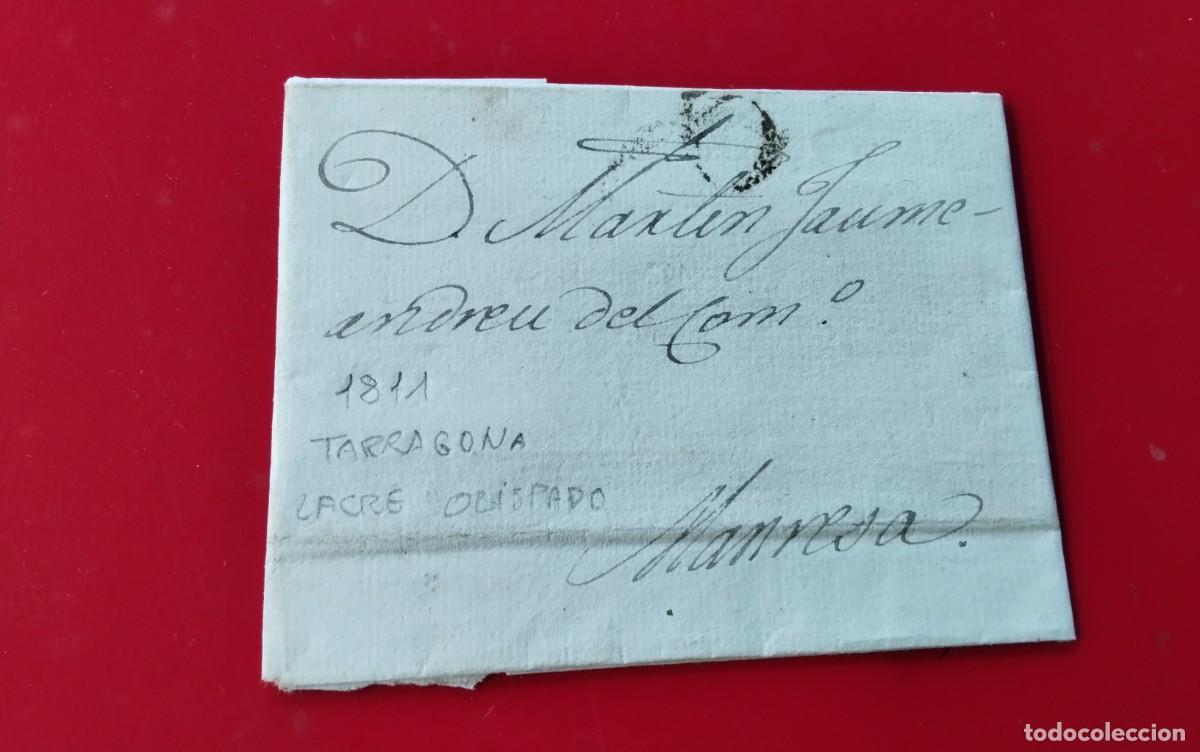 D. Martin Jaume-
andreu del Com.º
1811
TARRAGONA
LACRE OBISPADO
Manresa.
todocoleccion